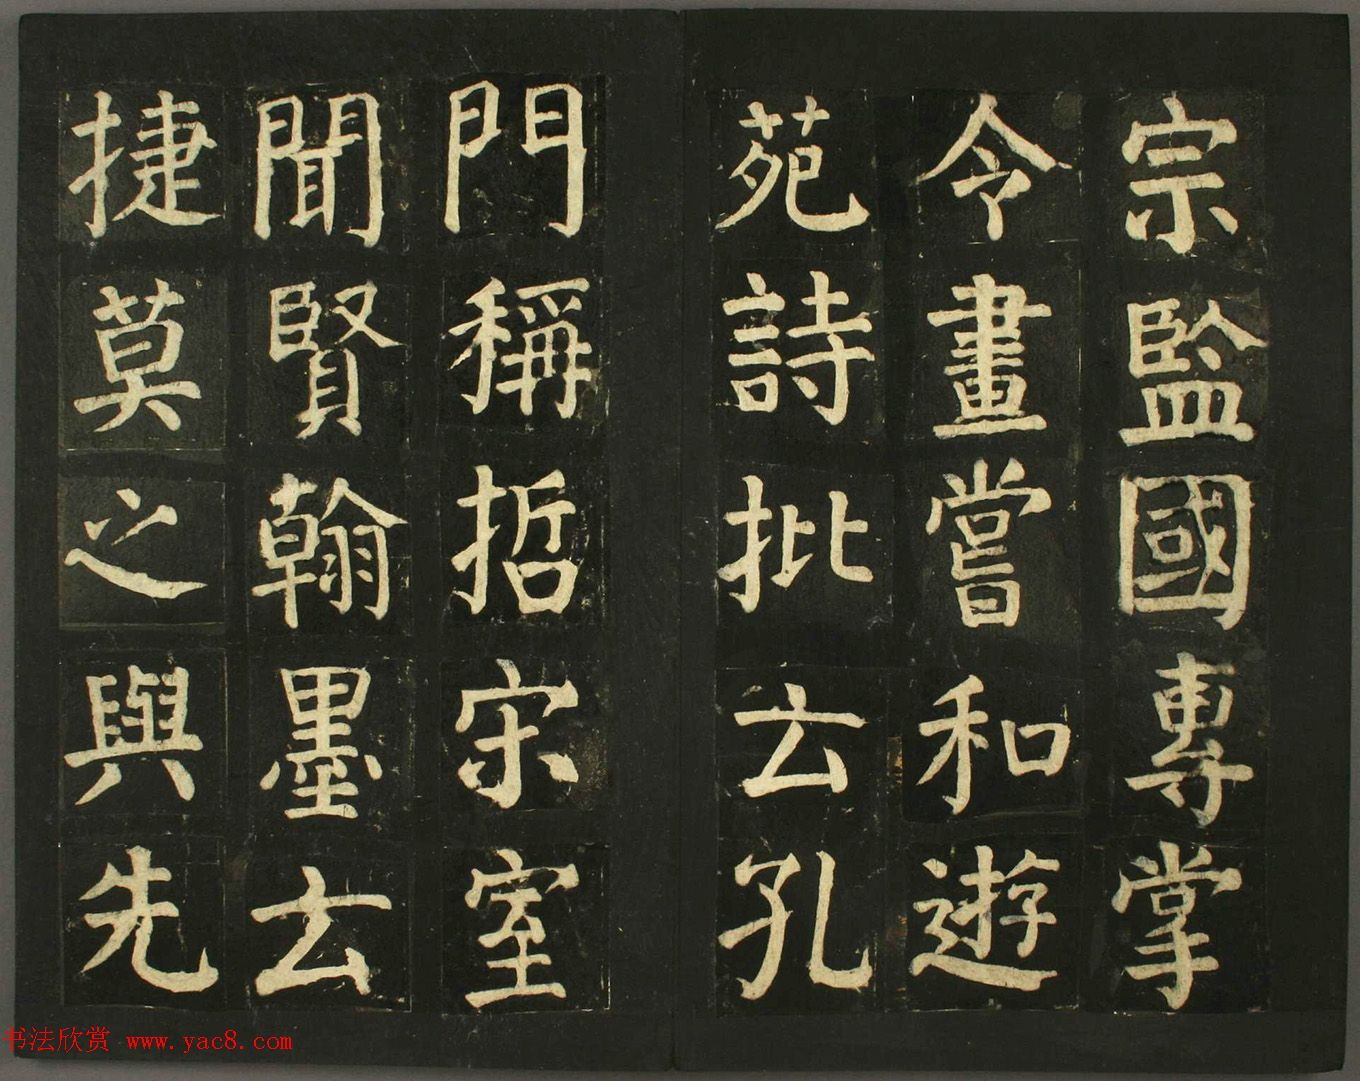 宗監國專掌
令畫嘗和遊
苑詩批云孔
門稱哲宋室
聞賢翰墨云
捷莫之與先
书法欣赏 www.yac8.com